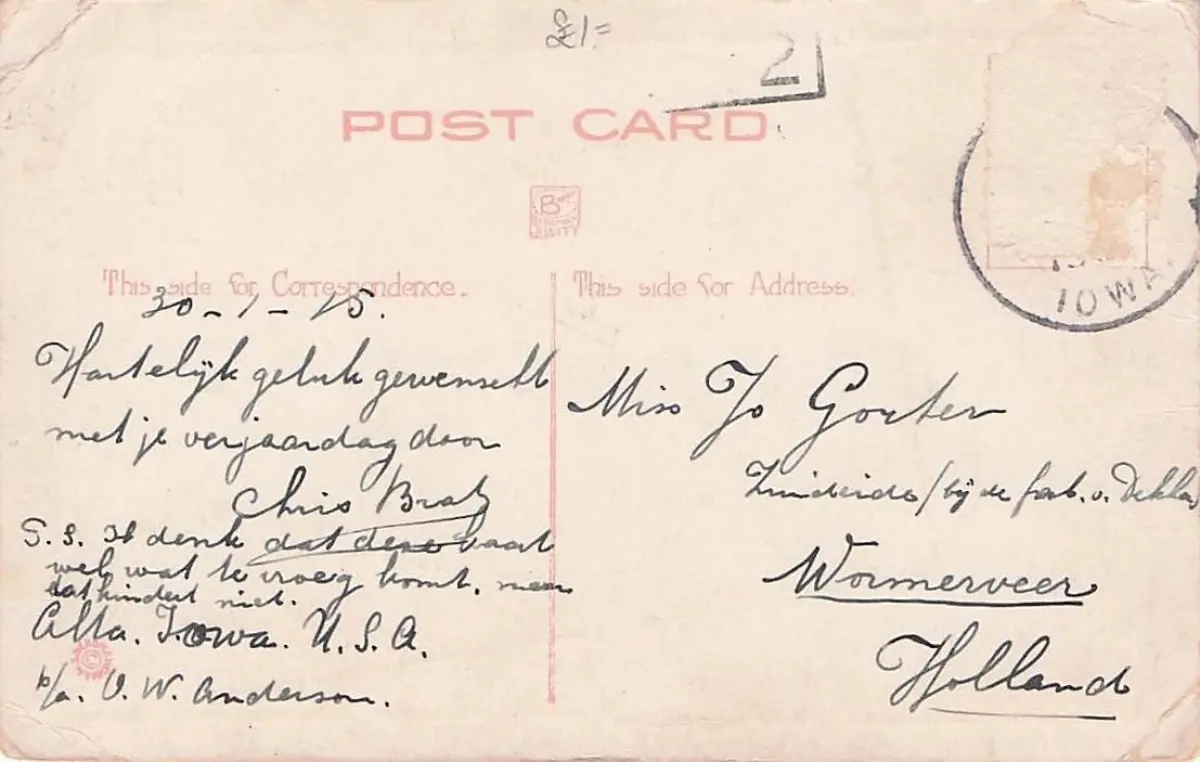 £1=
2
POST CARD
IOWA.
This side for Correspondence.
This side for Address.
30-1-15.
Hartelijk geluk gewenscht
met je verjaardag door
Chris Brat
P.S. Ik denk dat deze kaart
wel wat te vroeg komt, maar
dat hindert niet.
Alta. Iowa. U.S.A.
p/a. O. W. Anderson.
Miss Jo Gorter
Zuideinde / bij de fab. v. Dekker
Wormerveer
Holland